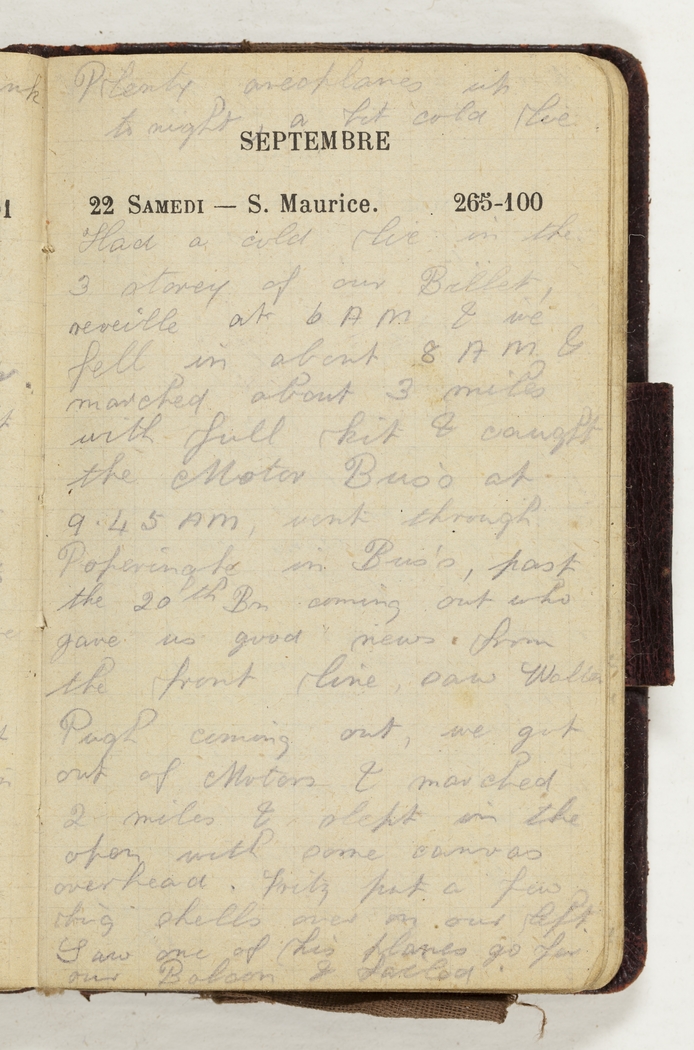 Plenty areoplanes up
to night, a bit cold
SEPTEMBRE
22 SAMEDI — S. Maurice. 265-100
Had a cold in the
3 storey of our Billet,
reveille at 6 AM & we
fell in about 8 AM &
marched about 3 miles
with full kit & caught
the Motor Bus's at
9.45 AM, went through
Poperinghe in Bus's, past
the 20th Bn coming out who
gave us good news from
the front line, saw
Pugh coming out, we got
out of Motors & marched
2 miles & slept in the
open with some canvas
overhead. Fritz put a few
big shells over on our left
Saw one of his planes go for
our Baloon & failed